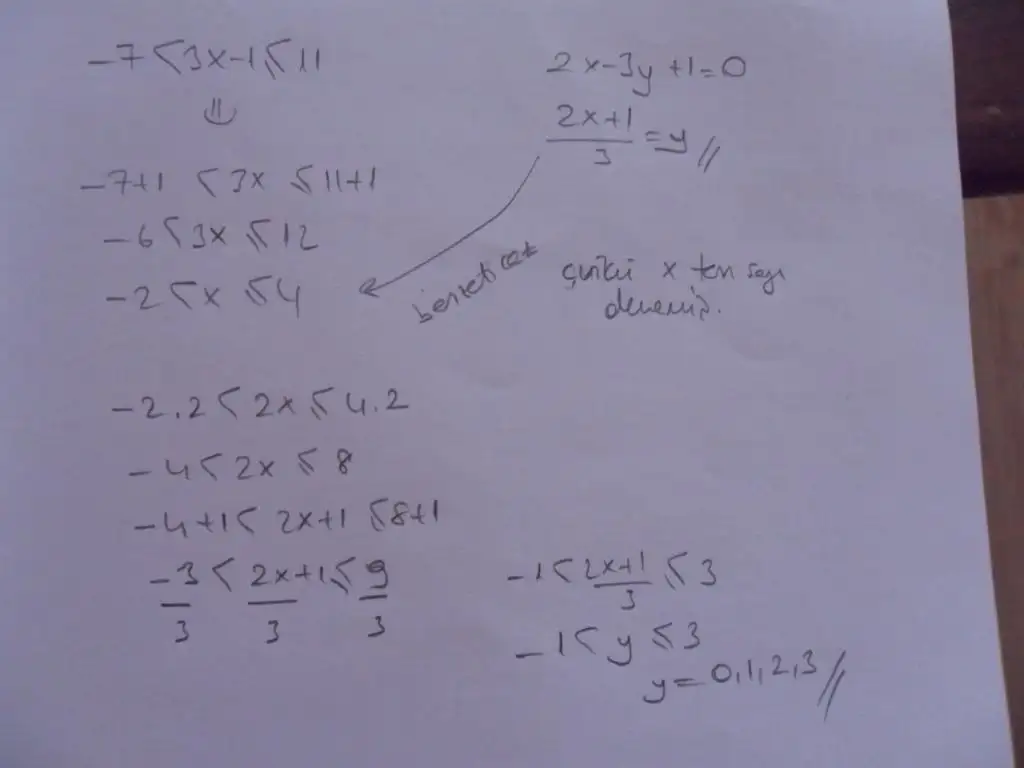 -7 < 3x-1 ≤ 11
-7+1 < 3x ≤ 11+1
-6 < 3x ≤ 12
-2 < x ≤ 4
2x-3y+1=0
2x+1/3 = y //
benzeticez
çünkü x ten sayı
denemiz.
-2.2 < 2x ≤ 4.2
-4 < 2x ≤ 8
-4+1 < 2x+1 ≤ 8+1
-3/3 < 2x+1/3 ≤ 9/3
-1 < 2x+1/3 ≤ 3
-1 < y ≤ 3
y = 0,1,2,3 //